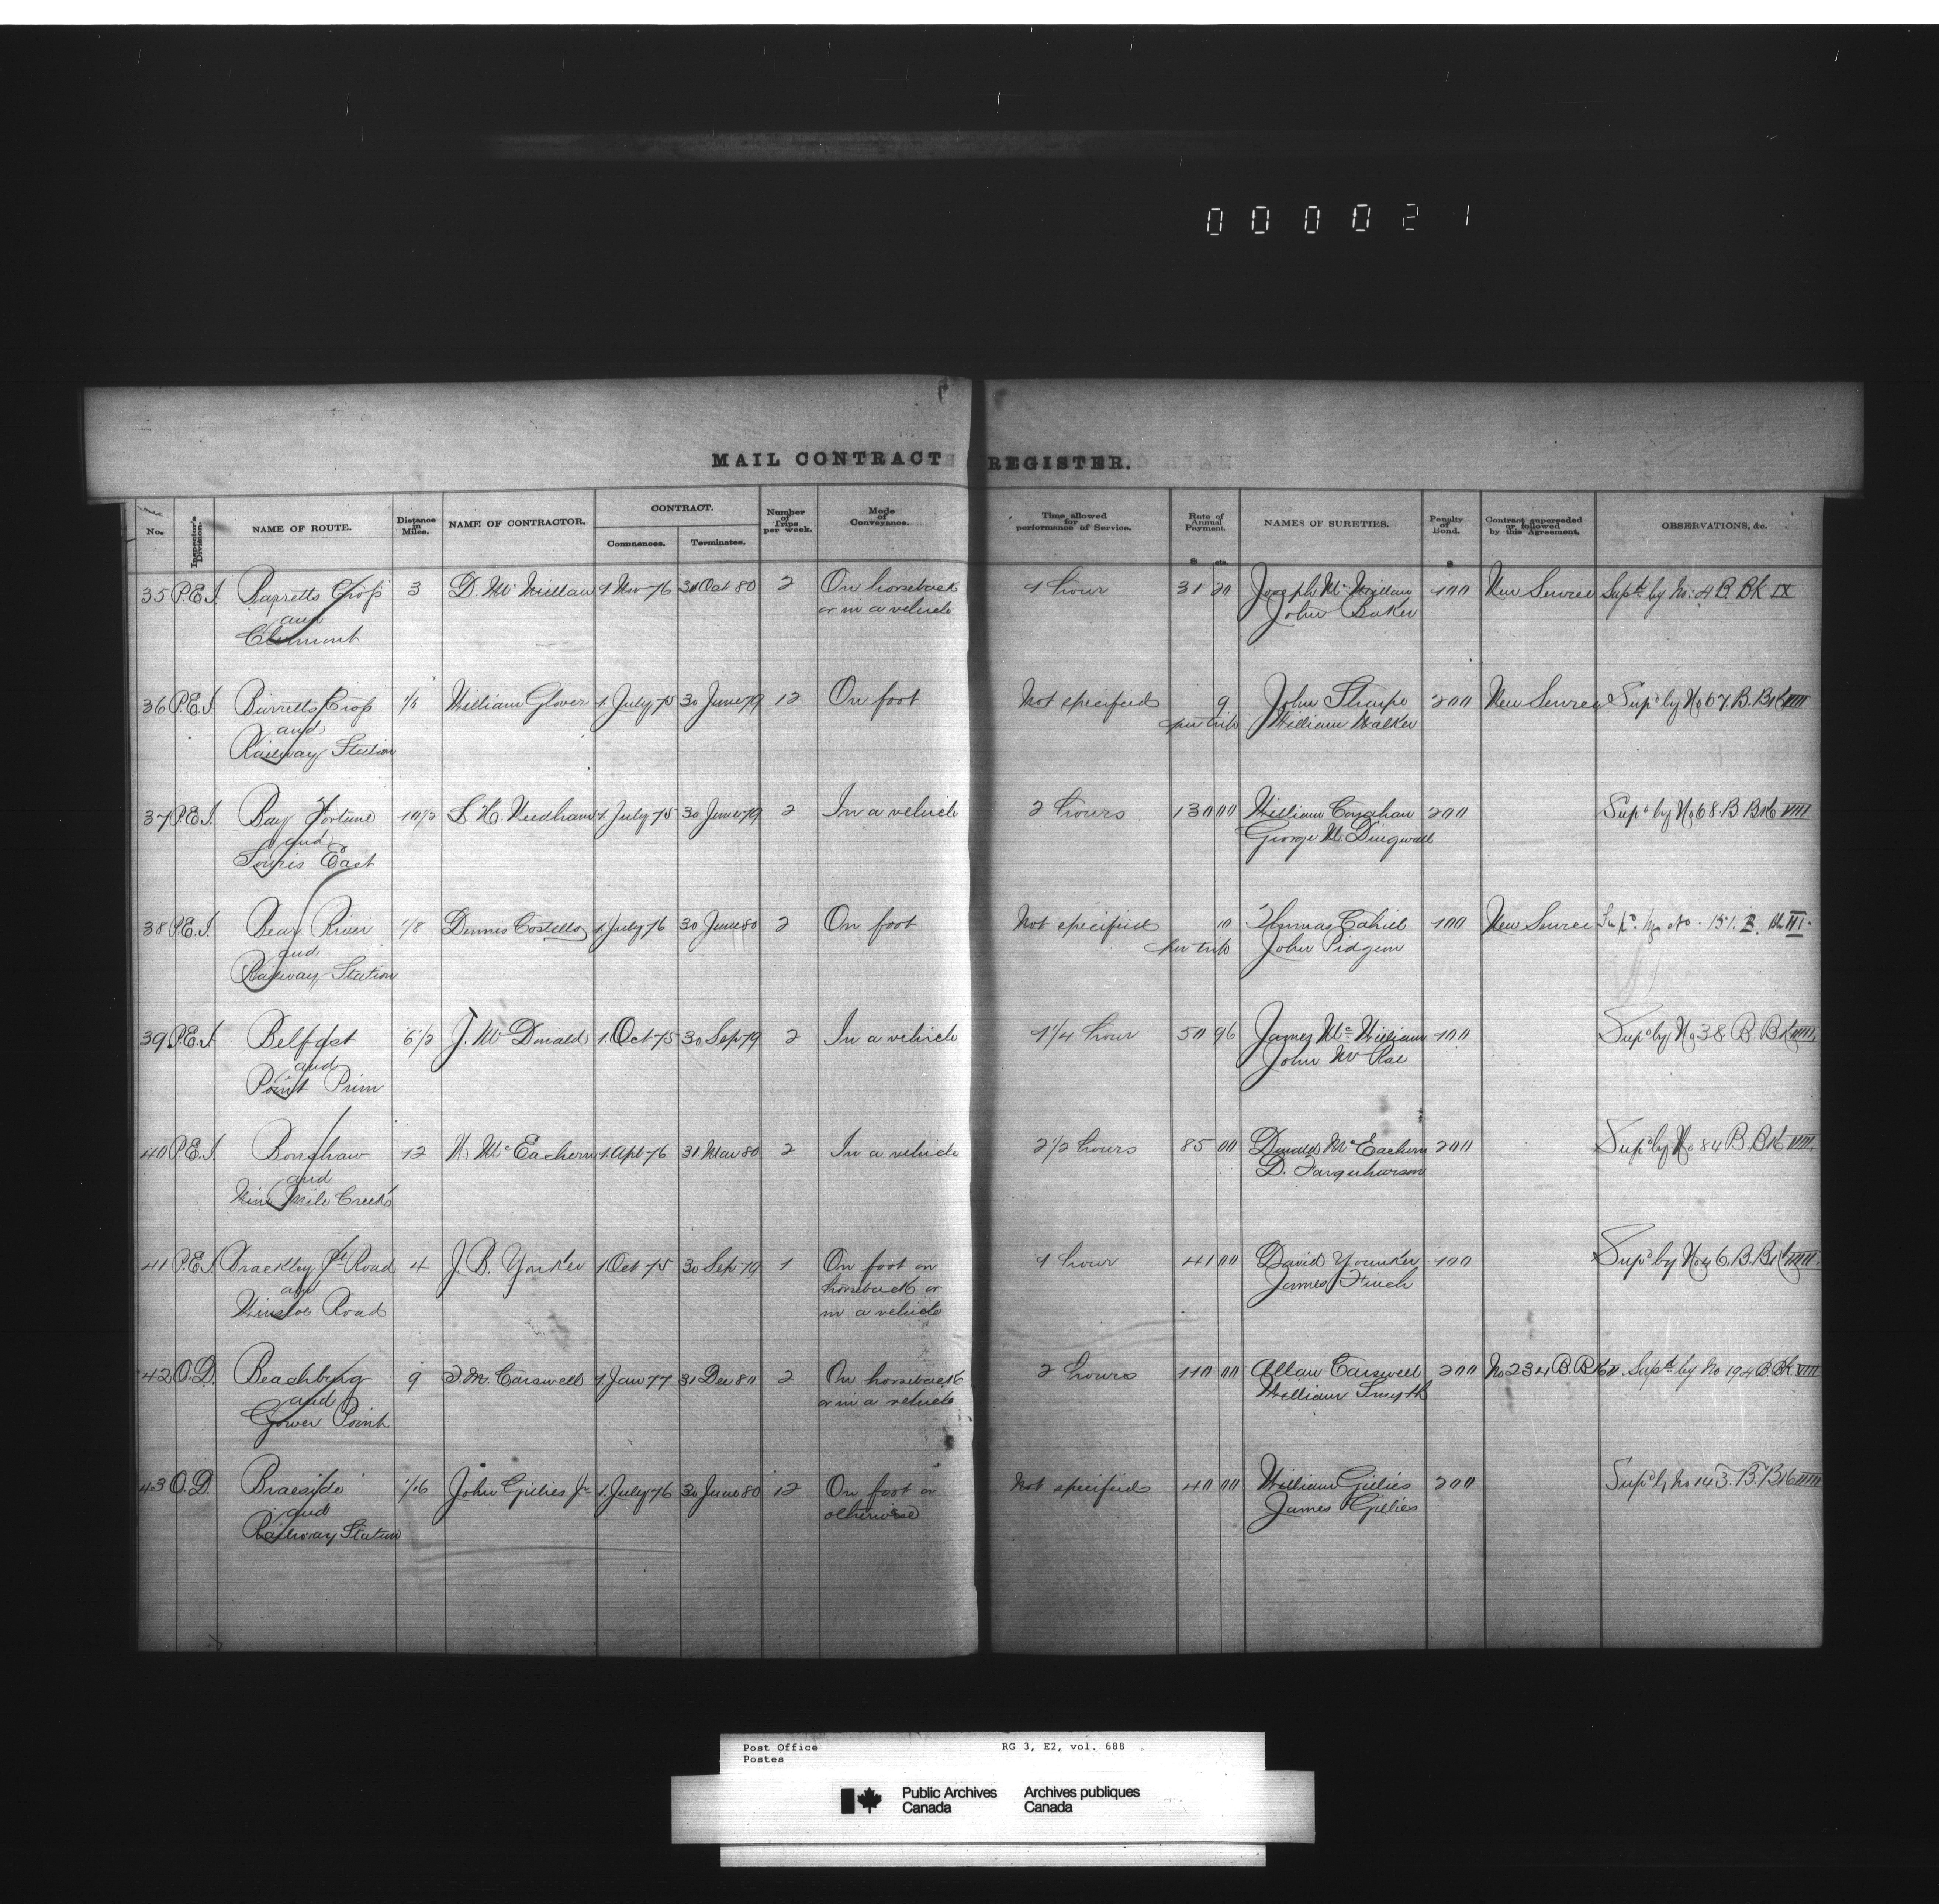 000021
MAIL CONTRACT REGISTER.
No. Inspector's Division. NAME OF ROUTE. Distance in Miles. NAME OF CONTRACTOR. CONTRACT. Commences. Terminates. Number of Trips per week. Mode of Conveyance. Time allowed for performance of Service. Rate of Annual Payment. $ cts. NAMES OF SURETIES. Penalty of Bond. $ Contract superseded or followed by this Agreement. OBSERVATIONS, &c.
35 P.E.I. Barretts Cross 3 D. McMillan 1 Nov 76 31 Oct 80 2 On horseback 1 hour 31 20 Joseph McMillan 100 New Service Supd by No: 4 B. Bk IX
and or in a vehicle John Baker
Clermont
36 P.E.I. Barretts Cross 1/4 William Glover 1 July 75 30 June 79 12 On foot Not specified 9 John Sharpe 200 New Service Supd by No 67. B. Bk VIII
and per trip William Walker
Railway Station
37 P.E.I. Bay Fortune 10 1/2 S. H. Needham 1 July 75 30 June 79 2 In a vehicle 2 hours 130 00 William Coughan 200 Supd by No 68. B Bk VIII
and George M. Dingwall
Souris East
38 P.E.I. Bear River 1/8 Dennis Costello 1 July 76 30 June 80 2 On foot Not specified 10 Thomas Cahill 100 New Service Supd. by No. 151. B. Bk VII.
and per trip John Pidgeon
Railway Station
39 P.E.I. Belfast 6 1/2 J. McDonald 1 Oct 75 30 Sep 79 2 In a vehicle 1 1/4 hour 50 96 James McWilliam 100 Supd by No 38 B. Bk VIII.
and John McRae
Point Prim
40 P.E.I. Bonshaw 12 N. McEachern 1 Apl 76 31 Mar 80 2 In a vehicle 2 1/2 hours 85 00 Donald McEachern 200 Supd by No 84 B. Bk VIII.
and D. Farquharson
Nine Mile Creek
41 P.E.I. Brackley Pt Road 4 J. B. Yonker 1 Oct 75 30 Sep 79 1 On foot on 1 hour 41 00 David Younker 100 Supd by No 46. B. Bk VIII.
and horseback or James Finch
Winsloe Road in a vehicle
42 O.D. Beachburg 9 D. M. Carswell 1 Jan 77 31 Dec 80 2 On horseback 2 hours 110 00 Allan Carswell 200 No 234 B. Bk V Supd by No 194 B. Bk VIII
and or in a vehicle William Smyth
Gower Point
43 O.D. Braeside 1/16 John Gillies Jr 1 July 76 30 June 80 12 On foot or Not specified 40 00 William Gillies 200 Supd by No 143. B. Bk VIII
and otherwise James Gillies
Railway Station
Post Office RG 3, E2, vol. 688
Postes
Public Archives Archives publiques
Canada Canada